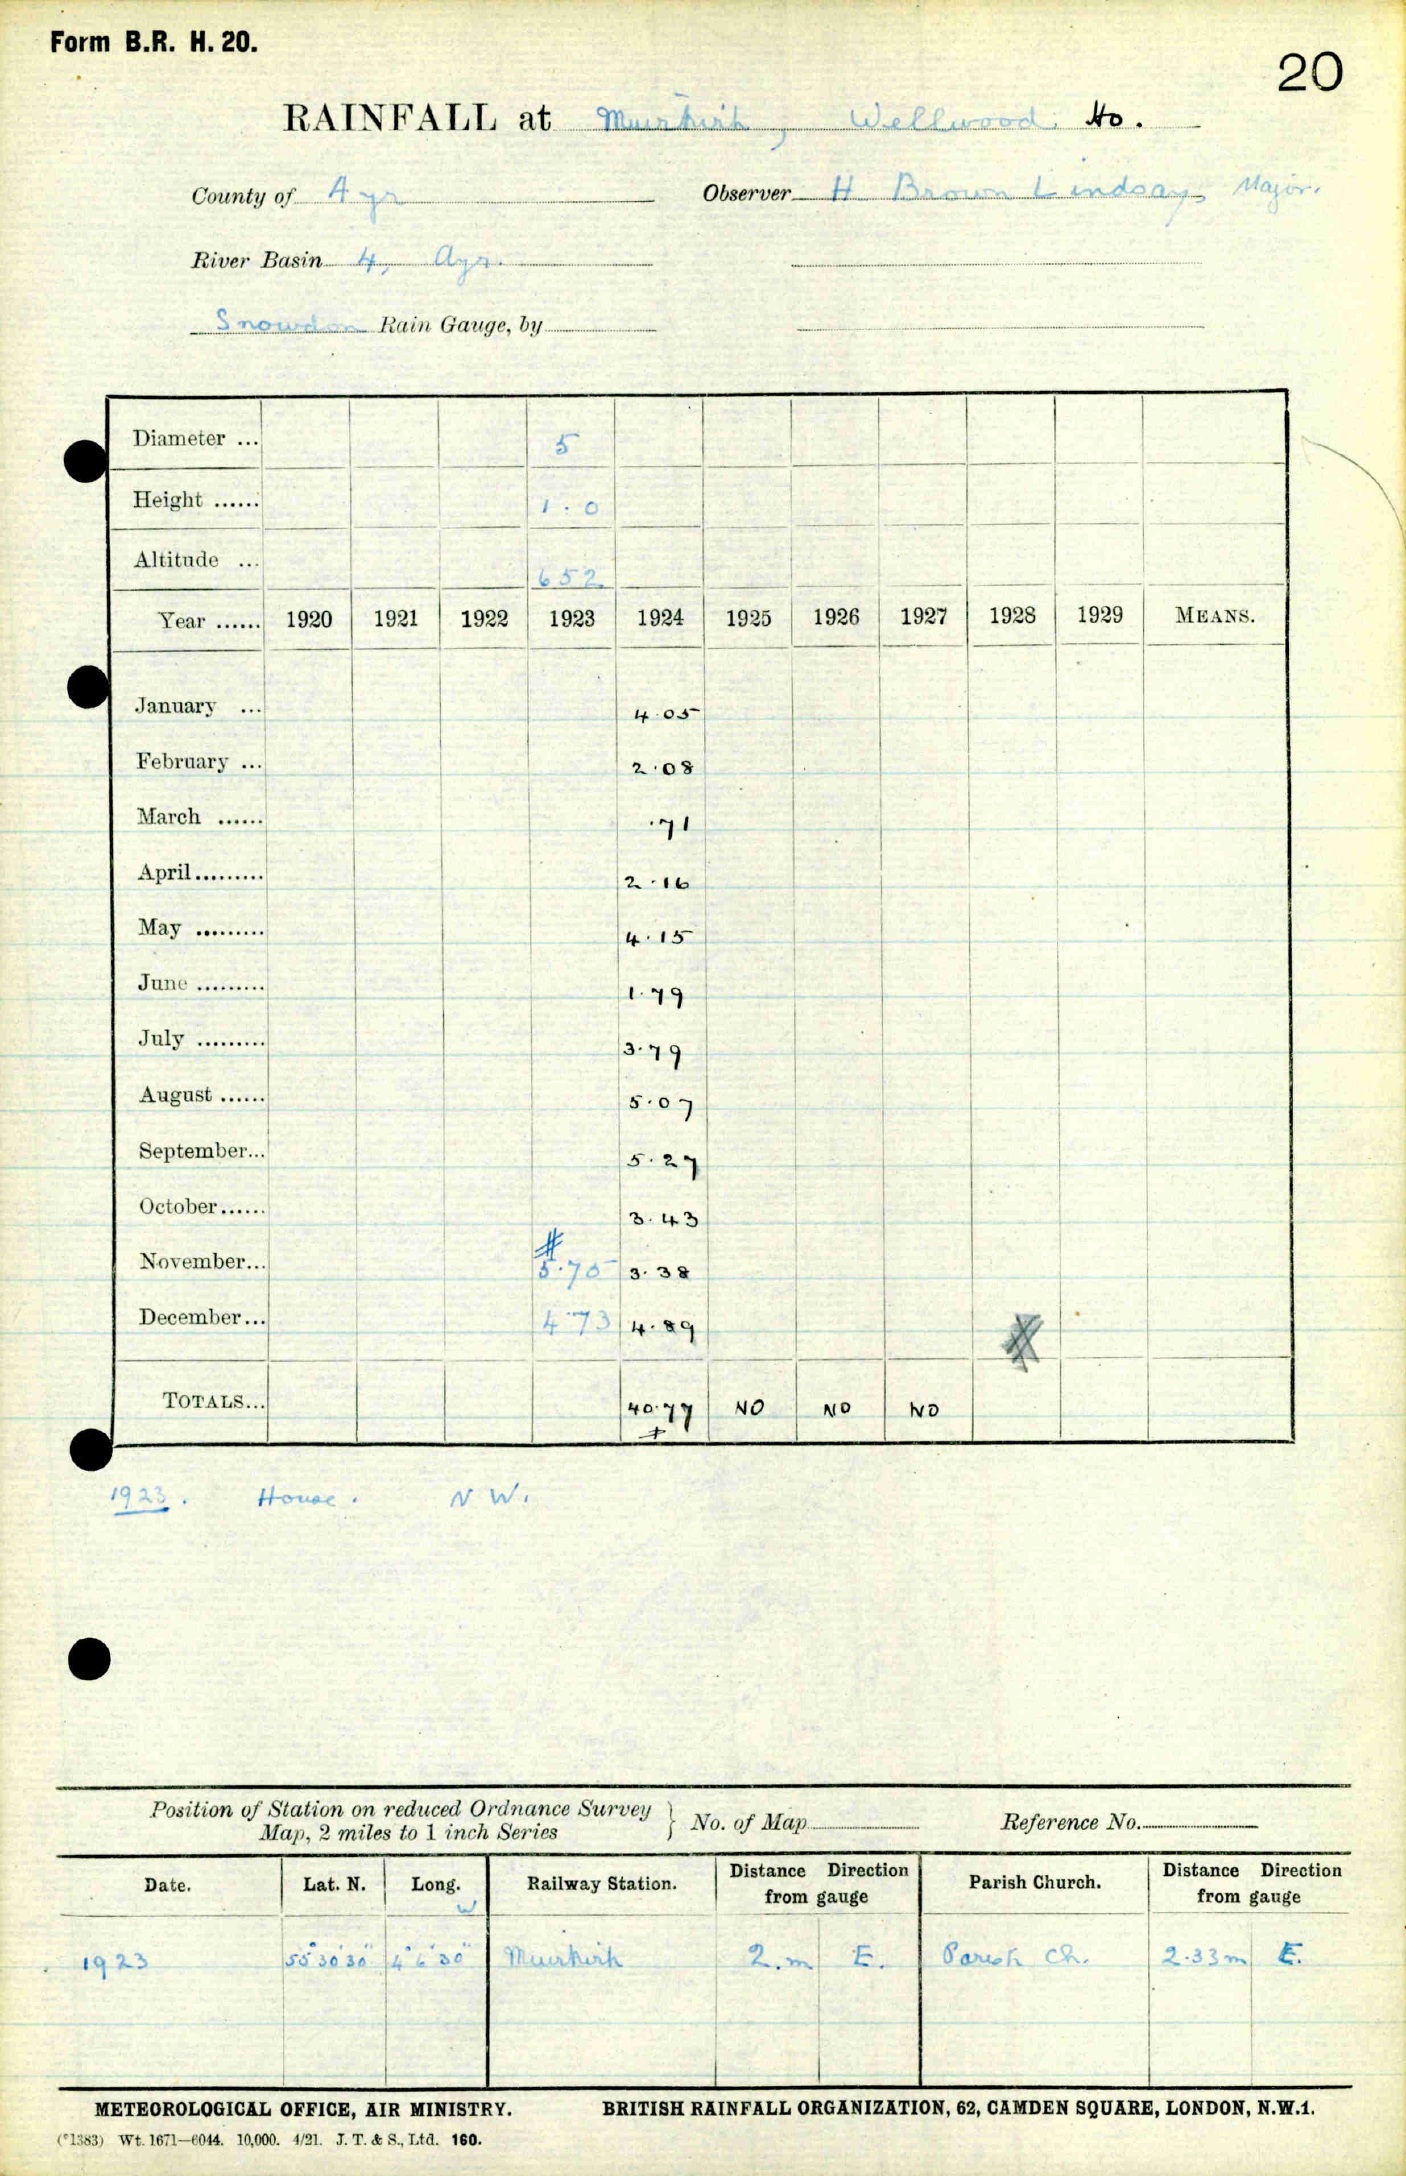 Form B.R. H. 20.
20
RAINFALL at Muirkirk, Wellwood Ho.
County of Ayr Observer H Brown Lindsay, Major.
River Basin 4, Ayr.
Snowdon Rain Gauge, by
Diameter ... 5
Height ...... 1.0
Altitude ... 652
Year ...... 1920 1921 1922 1923 1924 1925 1926 1927 1928 1929 MEANS.
January ... 4.05
February ... 2.08
March ...... .71
April......... 2.16
May ......... 4.15
June ......... 1.79
July ......... 3.79
August ...... 5.07
September... 5.27
October...... 3.43
#
November... 5.75 3.38
December... 4.73 4.89
TOTALS... 40.77 NO NO NO
1923. House. N W.
Position of Station on reduced Ordnance Survey
Map, 2 miles to 1 inch Series } No. of Map Reference No.
Date. Lat. N. Long. W Railway Station. Distance Direction from gauge Parish Church. Distance Direction from gauge
1923 55°30'30" 4°6'30" Muirkirk 2.m E. Parish Ch. 2.33m E.
METEOROLOGICAL OFFICE, AIR MINISTRY. BRITISH RAINFALL ORGANIZATION, 62, CAMDEN SQUARE, LONDON, N.W.1.
(*1383) Wt. 1671—6044. 10,000. 4/21. J. T. & S., Ltd. 160.